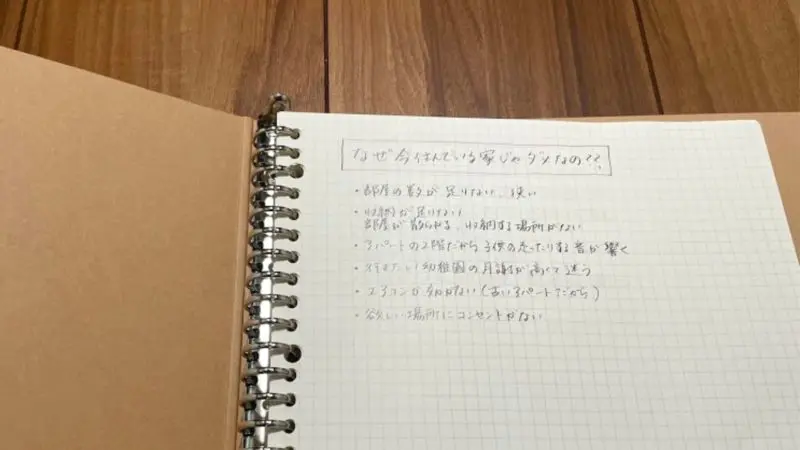 なぜ今住んでいる家じゃダメなの??
・部屋の数が足りない、狭い
・収納が足りない
部屋が散らかる、収納する場所がない
・アパートの2階だから子供の走ったりする音が響く
・行きたい幼稚園の月謝が高くて迷う
・エアコンが効かない(古いアパートだから)
・欲しい場所にコンセントがない